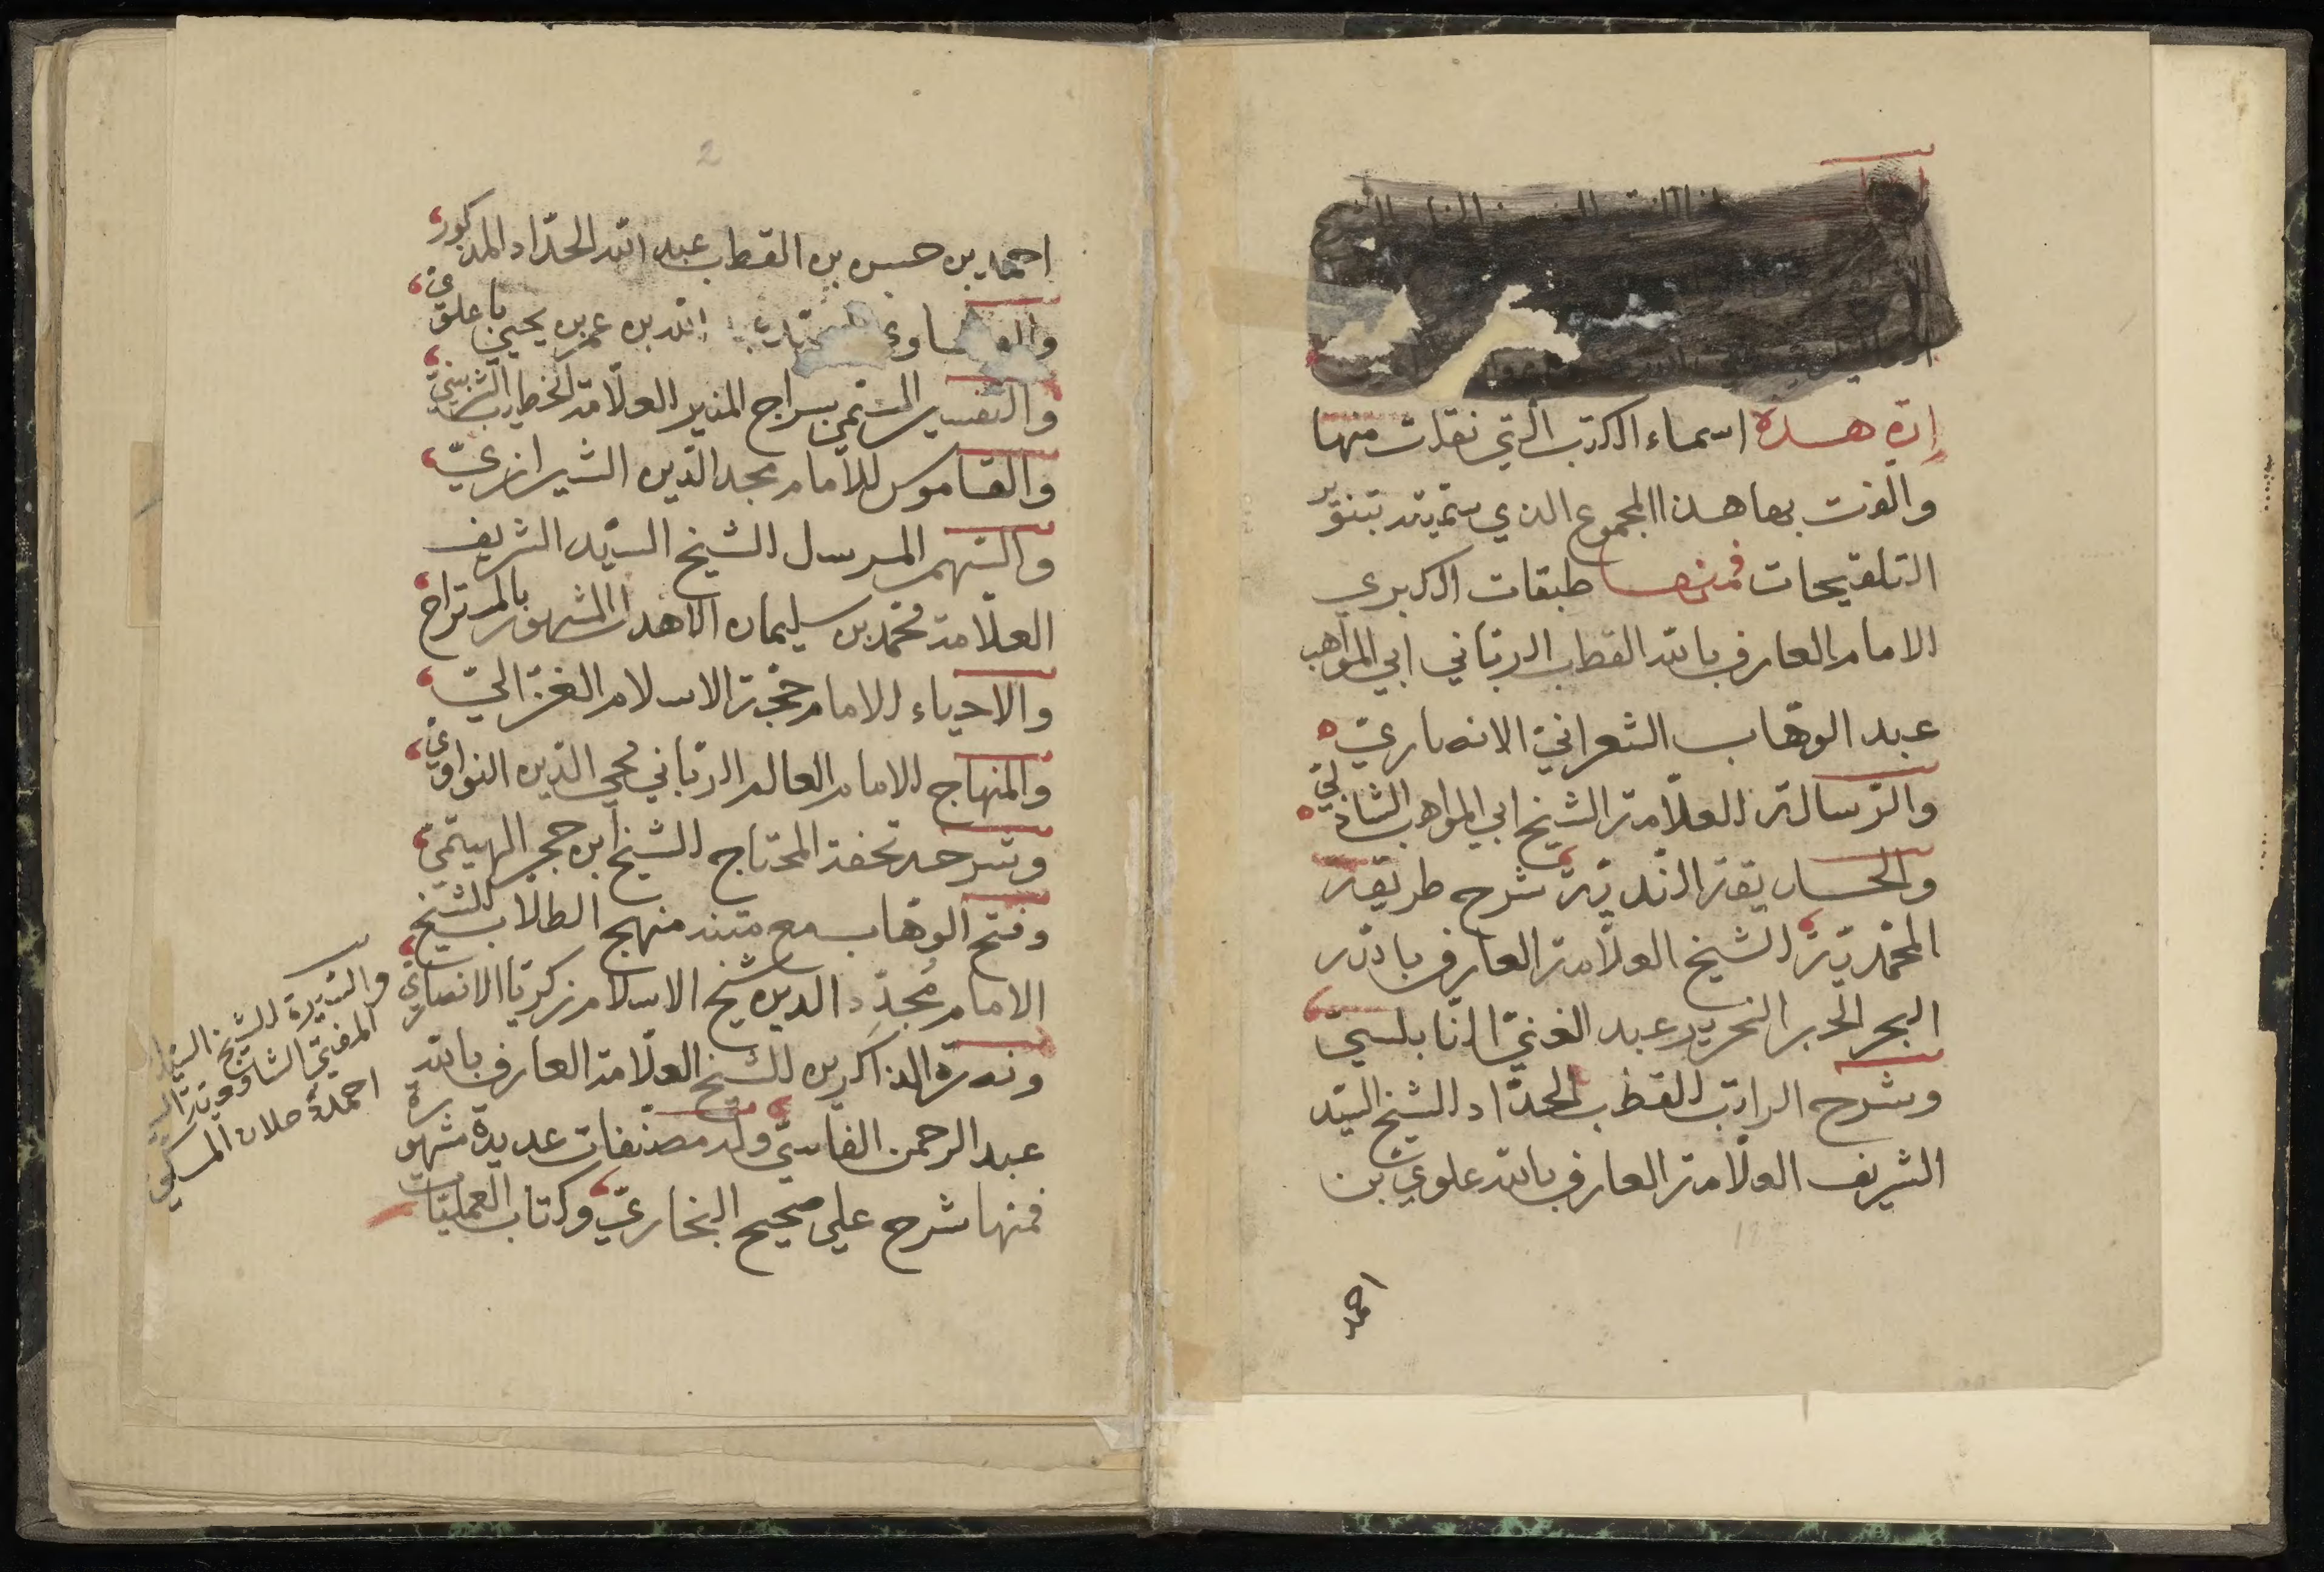 إن هذه اسماء الكتب التي نقلت منها
والفت بها هذا المجموع الذي سمّيته بتنوير
التلقيحات فمنها طبقات الكبرى
للامام العارف بالله القطب الربّاني ابي المواهب
عبد الوهّاب الشعرانيّ الانصاريّ
والرّسالة للعلّامة الشيخ ابي المواهب الشاذليّ
والحديقة النديّة شرح طريقة
المحمّديّة للشيخ العلّامة العارف بالله
البحر الحبر النحرير عبد الغنيّ النابلسيّ
وشرح الراتب للقطب الحدّاد للشيخ السيّد
الشريف العلّامة العارف بالله علوي بن
احمد
2
احمد بن حسن بن القطب عبد الله الحدّاد المذكور
الله بن عمر بن يحيى باعلويّ
والتفسير المسمّى بسراج المنير للعلّامة الخطيب الشربينيّ
والقاموس للامام مجد الدّين الشيرازيّ
والسّهم المرسل للشيخ السيّد الشريف
العلّامة محمّد بن سليمان الاهدل المشهور بالمستراح
والاحياء للامام حجّة الاسلام الغزّاليّ
والمنهاج للامام العالم الربّاني محيي الدّين النواويّ
وشرحه تحفة المحتاج للشيخ ابن حجر الهيتميّ
وفتح الوهّاب مع متنه منهج الطلّاب للشيخ
الامام مُجدّد الدين شيخ الاسلام زكريّا الانصاريّ
ونصرة الذاكرين للشيخ العلّامة العارف بالله
عبد الرحمن الفاسيّ وله مصنّفات عديدة مشهورة
فمنها شرح على صحيح البخاريّ وكتاب العمليّات
والسّيرة للشيخ السيّد
المفتي الشافعيّة
احمد دحلان المكي